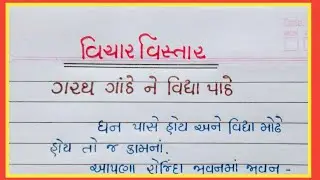 વિચાર વિસ્તાર
ગરથ ગાંઠે ને વિદ્યા પાઠે
ધન પાસે હોય અને વિદ્યા મોઢે
હોય તો જ કામનાં.
આપણા રોજિંદા જીવનમાં જીવન -